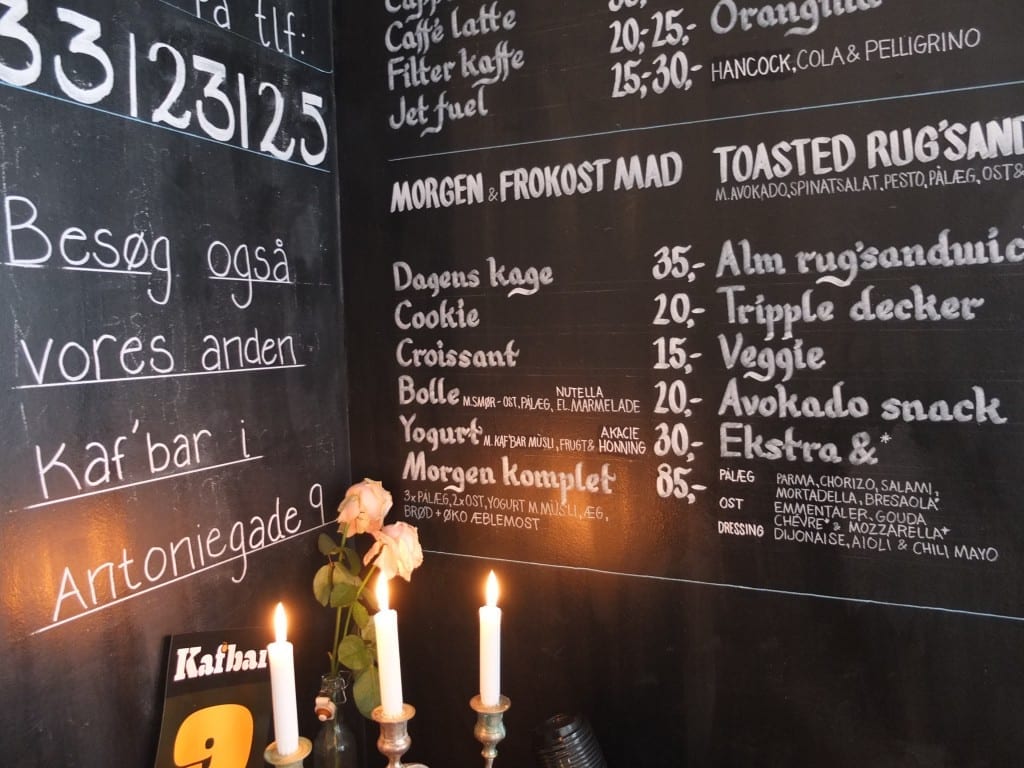 På tlf:
33123125
Besøg også
vores anden
Kaf'bar i
Antoniegade 9
Kaf'bar
9
Caffé latte
Filter kaffe
Jet fuel
20,-25,-
25,-30,-
Orangina
HANCOCK, COLA & PELLIGRINO
MORGEN & FROKOST MAD
Dagens kage 35,-
Cookie 20,-
Croissant 15,-
Bolle M.SMØR - OST, PÅLÆG, NUTELLA EL. MARMELADE 20,-
Yogurt M. KAF'BAR MÜSLI, FRUGT & AKACIE HONNING 30,-
Morgen komplet 85,-
3 x PALÆG, 2 x OST, YOGURT M. MÜSLI, ÆG,
BRØD + ØKO ÆBLEMOST
TOASTED RUG'SAND
M. AVOKADO, SPINATSALAT, PESTO, PÅLÆG, OST &
Alm rug'sandwic
Tripple decker
Veggie
Avokado snack
Ekstra &*
PÅLÆG PARMA, CHORIZO, SALAMI,
MORTADELLA, BRESAOLA*
OST EMMENTALER, GOUDA
CHÉVRE* & MOZZARELLA*
DRESSING DIJONAISE, AIOLI & CHILI MAYO